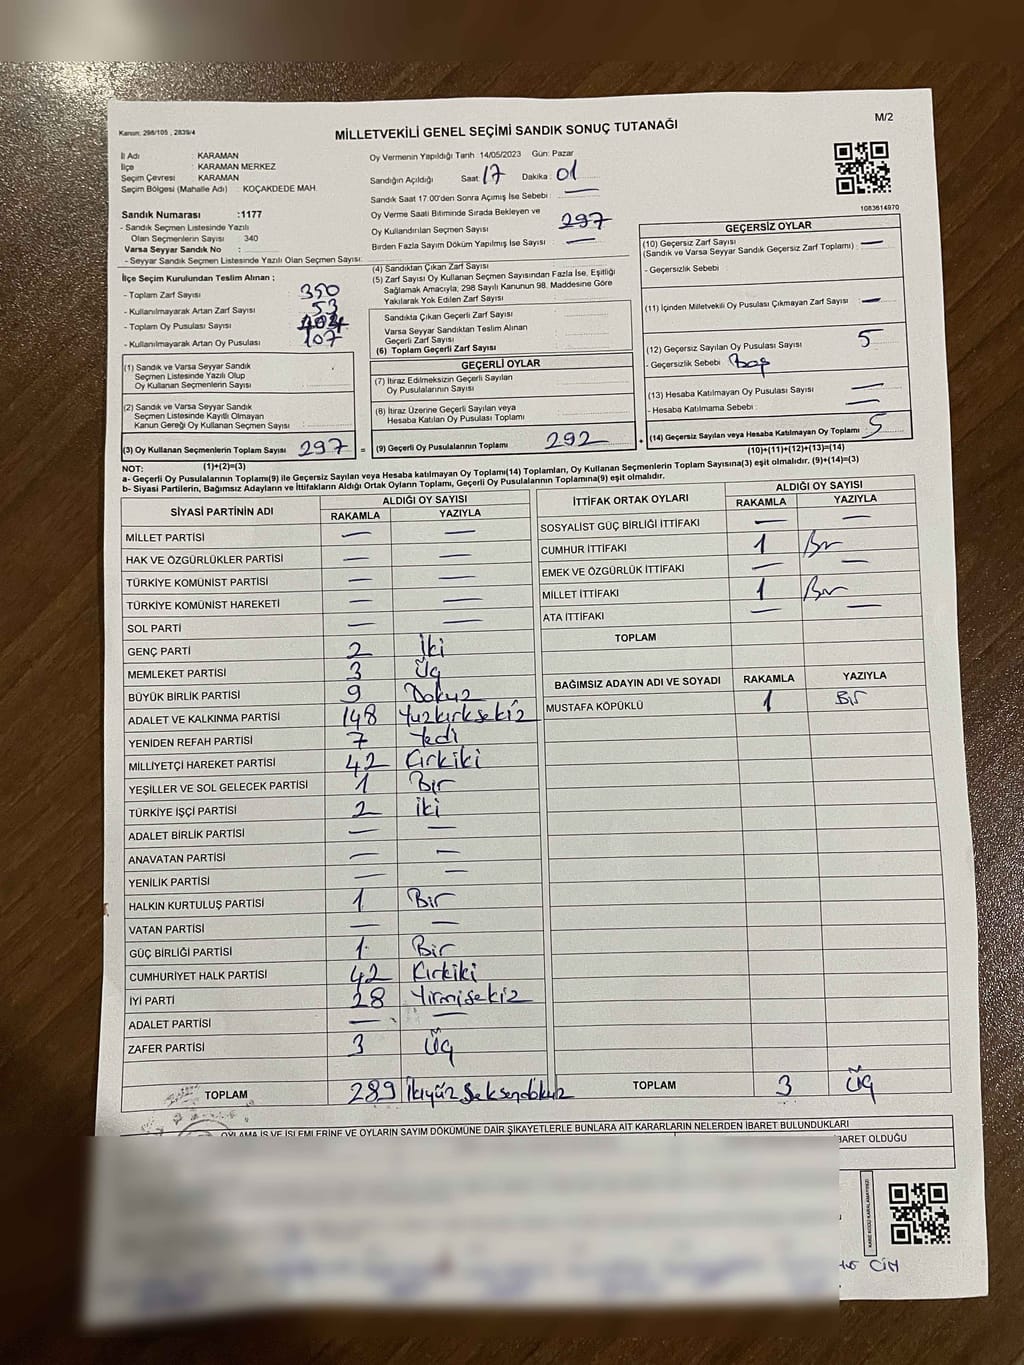 Kanun: 298/105 , 2839/4
MİLLETVEKİLİ GENEL SEÇİMİ SANDIK SONUÇ TUTANAĞI
M/2
İl Adı : KARAMAN
İlçe : KARAMAN MERKEZ
Seçim Çevresi : KARAMAN
Seçim Bölgesi (Mahalle Adı) : KOÇAKDEDE MAH.
Sandık Numarası :1177
- Sandık Seçmen Listesinde Yazılı
Olan Seçmenlerin Sayısı 340
Varsa Seyyar Sandık No :
- Seyyar Sandık Seçmen Listesinde Yazılı Olan Seçmen Sayısı:
Oy Vermenin Yapıldığı Tarih 14/05/2023 Gün: Pazar
Sandığın Açıldığı Saat: 17 Dakika: 01
Sandık Saat 17.00'den Sonra Açımış İse Sebebi : —
Oy Verme Saati Bitiminde Sırada Bekleyen ve
Oy Kullandırılan Seçmen Sayısı 297
Birden Fazla Sayım Döküm Yapılmış İse Sayısı : —
1083614970
İlçe Seçim Kurulundan Teslim Alınan ;
- Toplam Zarf Sayısı 350
- Kullanılmayarak Artan Zarf Sayısı 53
- Toplam Oy Pusulası Sayısı 404
- Kullanılmayarak Artan Oy Pusulası 107
(1) Sandık ve Varsa Seyyar Sandık
Seçmen Listesinde Yazılı Olup
Oy Kullanan Seçmenlerin Sayısı
(2) Sandık ve Varsa Seyyar Sandık
Seçmen Listesinde Kayıtlı Olmayan
Kanun Gereği Oy Kullanan Seçmen Sayısı :
(3) Oy Kullanan Seçmenlerin Toplam Sayısı 297 =
(4) Sandıktan Çıkan Zarf Sayısı
(5) Zarf Sayısı Oy Kullanan Seçmen Sayısından Fazla İse, Eşitliği
Sağlamak Amacıyla, 298 Sayılı Kanunun 98. Maddesine Göre
Yakılarak Yok Edilen Zarf Sayısı
Sandıkta Çıkan Geçerli Zarf Sayısı
Varsa Seyyar Sandıktan Teslim Alınan
Geçerli Zarf Sayısı
(6) Toplam Geçerli Zarf Sayısı
GEÇERLİ OYLAR
(7) İtiraz Edilmeksizin Geçerli Sayılan
Oy Pusulalarının Sayısı
(8) İtiraz Üzerine Geçerli Sayılan veya
Hesaba Katılan Oy Pusulası Toplamı
(9) Geçerli Oy Pusulalarının Toplamı 292 +
GEÇERSİZ OYLAR
(10) Geçersiz Zarf Sayısı
(Sandık ve Varsa Seyyar Sandık Geçersiz Zarf Toplamı) : —
- Geçersizlik Sebebi
(11) İçinden Milletvekili Oy Pusulası Çıkmayan Zarf Sayısı —
(12) Geçersiz Sayılan Oy Pusulası Sayısı 5
- Geçersizlik Sebebi Boş
(13) Hesaba Katılmayan Oy Pusulası Sayısı —
- Hesaba Katılmama Sebebi : —
(14) Geçersiz Sayılan veya Hesaba Katılmayan Oy Toplamı 5
(1)+(2)=(3)
(10)+(11)+(12)+(13)=(14)
NOT:
a- Geçerli Oy Pusulalarının Toplamı(9) ile Geçersiz Sayılan veya Hesaba katılmayan Oy Toplamı(14) Toplamları, Oy Kullanan Seçmenlerin Toplam Sayısına(3) eşit olmalıdır. (9)+(14)=(3)
b- Siyasi Partilerin, Bağımsız Adayların ve İttifakların Aldığı Ortak Oyların Toplamı, Geçerli Oy Pusulalarının Toplamına(9) eşit olmalıdır.
SİYASİ PARTİNİN ADI ALDIĞI OY SAYISI
RAKAMLA YAZIYLA
MİLLET PARTİSİ — —
HAK VE ÖZGÜRLÜKLER PARTİSİ — —
TÜRKİYE KOMÜNİST PARTİSİ — —
TÜRKİYE KOMÜNİST HAREKETİ — —
SOL PARTİ — —
GENÇ PARTİ 2 İki
MEMLEKET PARTİSİ 3 Üç
BÜYÜK BİRLİK PARTİSİ 9 Dokuz
ADALET VE KALKINMA PARTİSİ 148 Yüzkırksekiz
YENİDEN REFAH PARTİSİ 7 Yedi
MİLLİYETÇİ HAREKET PARTİSİ 42 Kırkiki
YEŞİLLER VE SOL GELECEK PARTİSİ 1 Bir
TÜRKİYE İŞÇİ PARTİSİ 2 iki
ADALET BİRLİK PARTİSİ — —
ANAVATAN PARTİSİ — —
YENİLİK PARTİSİ — —
HALKIN KURTULUŞ PARTİSİ 1 Bir
VATAN PARTİSİ — —
GÜÇ BİRLİĞİ PARTİSİ 1 Bir
CUMHURİYET HALK PARTİSİ 42 Kırkiki
İYİ PARTİ 28 Yirmisekiz
ADALET PARTİSİ — —
ZAFER PARTİSİ 3 Üç
TOPLAM 289 İkiyüzSeksendokuz
İTTİFAK ORTAK OYLARI ALDIĞI OY SAYISI
RAKAMLA YAZIYLA
SOSYALİST GÜÇ BİRLİĞİ İTTİFAKI — —
CUMHUR İTTİFAKI 1 Bir
EMEK VE ÖZGÜRLÜK İTTİFAKI — —
MİLLET İTTİFAKI 1 Bir
ATA İTTİFAKI — —
TOPLAM
BAĞIMSIZ ADAYIN ADI VE SOYADI RAKAMLA YAZIYLA
MUSTAFA KÖPÜKLÜ 1 Bir
TOPLAM 3 Üç
OYLAMA İŞ VE İŞLEMLERİNE VE OYLARIN SAYIM DÖKÜMÜNE DAİR ŞİKAYETLERLE BUNLARA AİT KARARLARIN NELERDEN İBARET BULUNDUKLARI
İBARET OLDUĞU